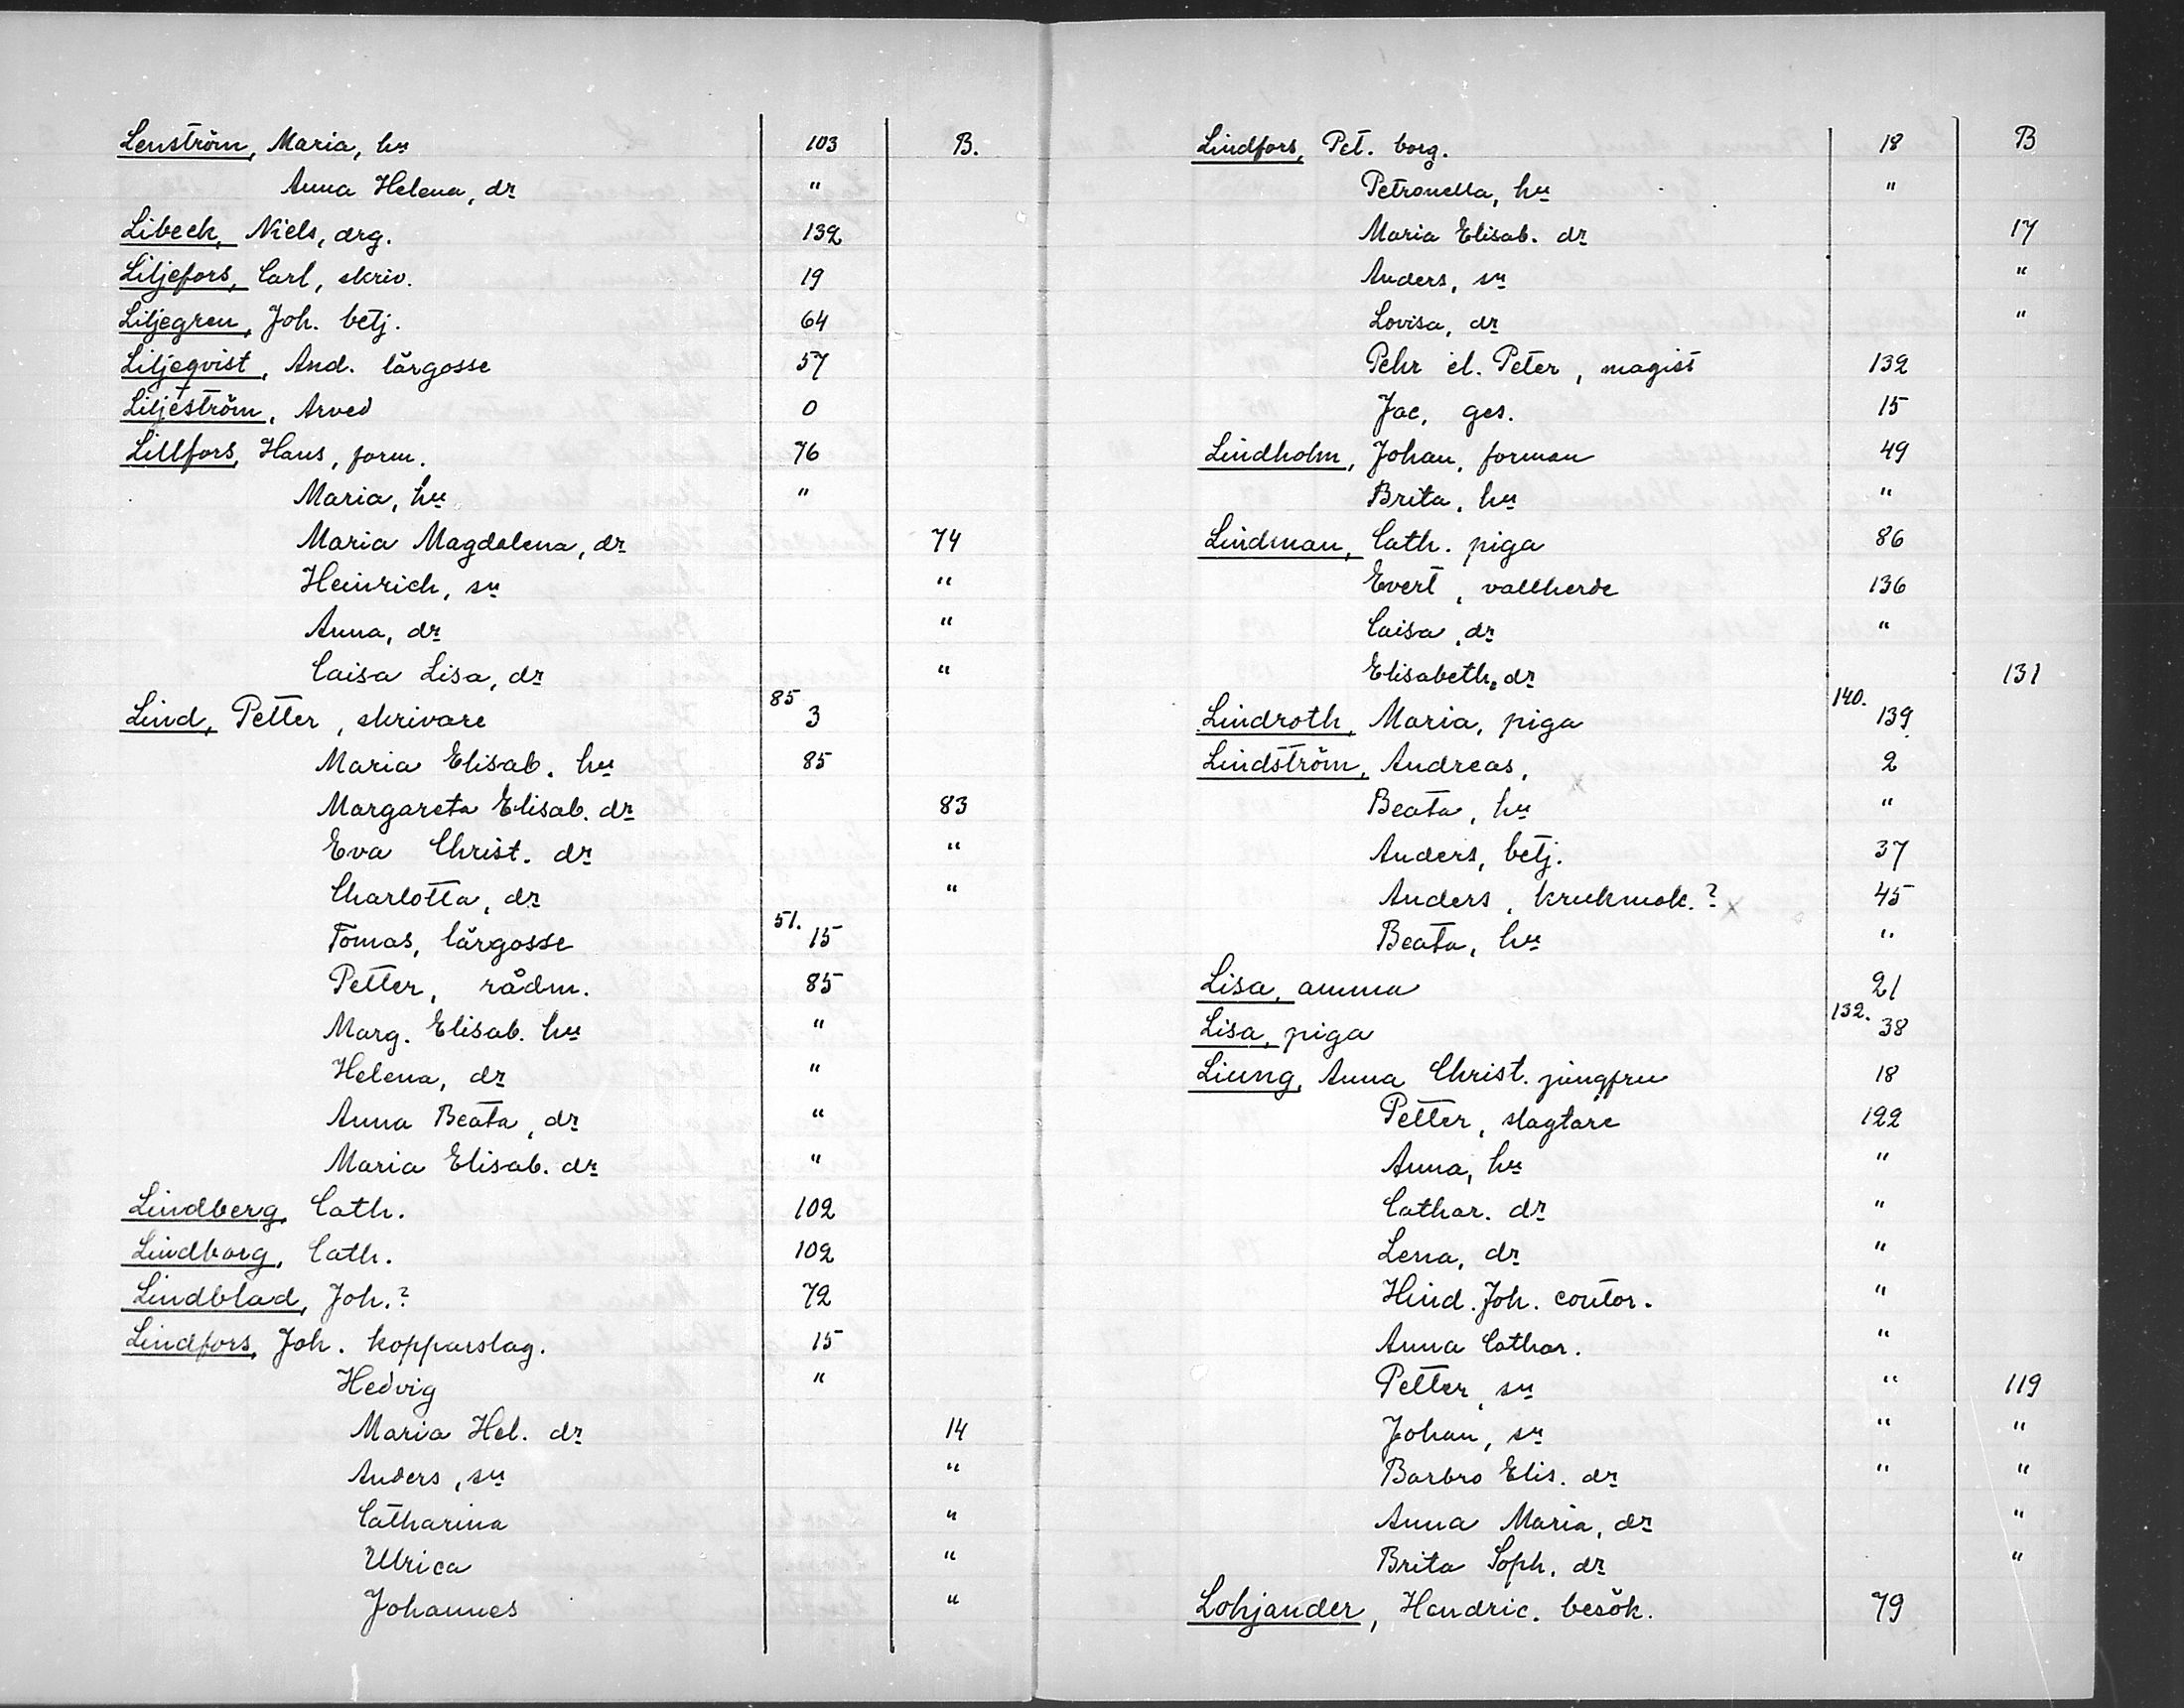 Lenström, Maria, hu 103 B.
Anna Helena, dr "
Libeck, Niels, drg. 132
Liljefors, Carl, skriv. 19
Liljegren, Joh. betj. 64
Liljeqvist, And. lärgosse 57
Liljeström, Arved 0
Lillfors, Hans, form. 76
Maria, hu "
Maria Magdalena, dr 74
Heinrich, sn "
Anna, dr "
Caisa Lisa, dr "
Lind, Petter, skrivare 85 3
Maria Elisab. hu 85
Margareta Elisab. dr 83
Eva Christ. dr "
Charlotta, dr "
Tomas, lärgosse 51. 15
Petter, rådm. 85
Marg. Elisab. hu "
Helena, dr "
Anna Beata, dr "
Maria Elisab. dr "
Lindberg, Cath. 102
Lindborg, Cath. 102
Lindblad, Joh.? 72
Lindfors, Joh. kopparslag. 15
Hedvig "
Maria Hel. dr 14
Anders, sn "
Catharina "
Ulrica "
Johannes "
Lindfors, Pet. borg. 18 B
Petronella, hu "
Maria Elisab. dr 17
Anders, sn "
Lovisa, dr "
Pehr el. Peter, magist 132
Jac, ges. 15
Lindholm, Johan, forman 49
Brita, hu "
Lindman, Cath. piga 86
Evert, vallherde 136
Caisa, dr "
Elisabeth, dr 131
Lindroth, Maria, piga 140. 139
Lindström, Andreas, 2
Beata, hu "
Anders, betj. 37
Anders, krukmak.? x 45
Beata, hu "
Lisa, amma 21
Lisa, piga 132. 38
Liung, Anna Christ. jungfru 18
Petter, slagtare 122
Anna, hu "
Cathar. dr "
Lena, dr "
Hind. Joh. contor. "
Anna Cathar. "
Petter, sn " 119
Johan, sn " "
Barbro Elis. dr " "
Anna Maria, dr "
Brita Soph. dr "
Lohjander, Hendric. besök. 79